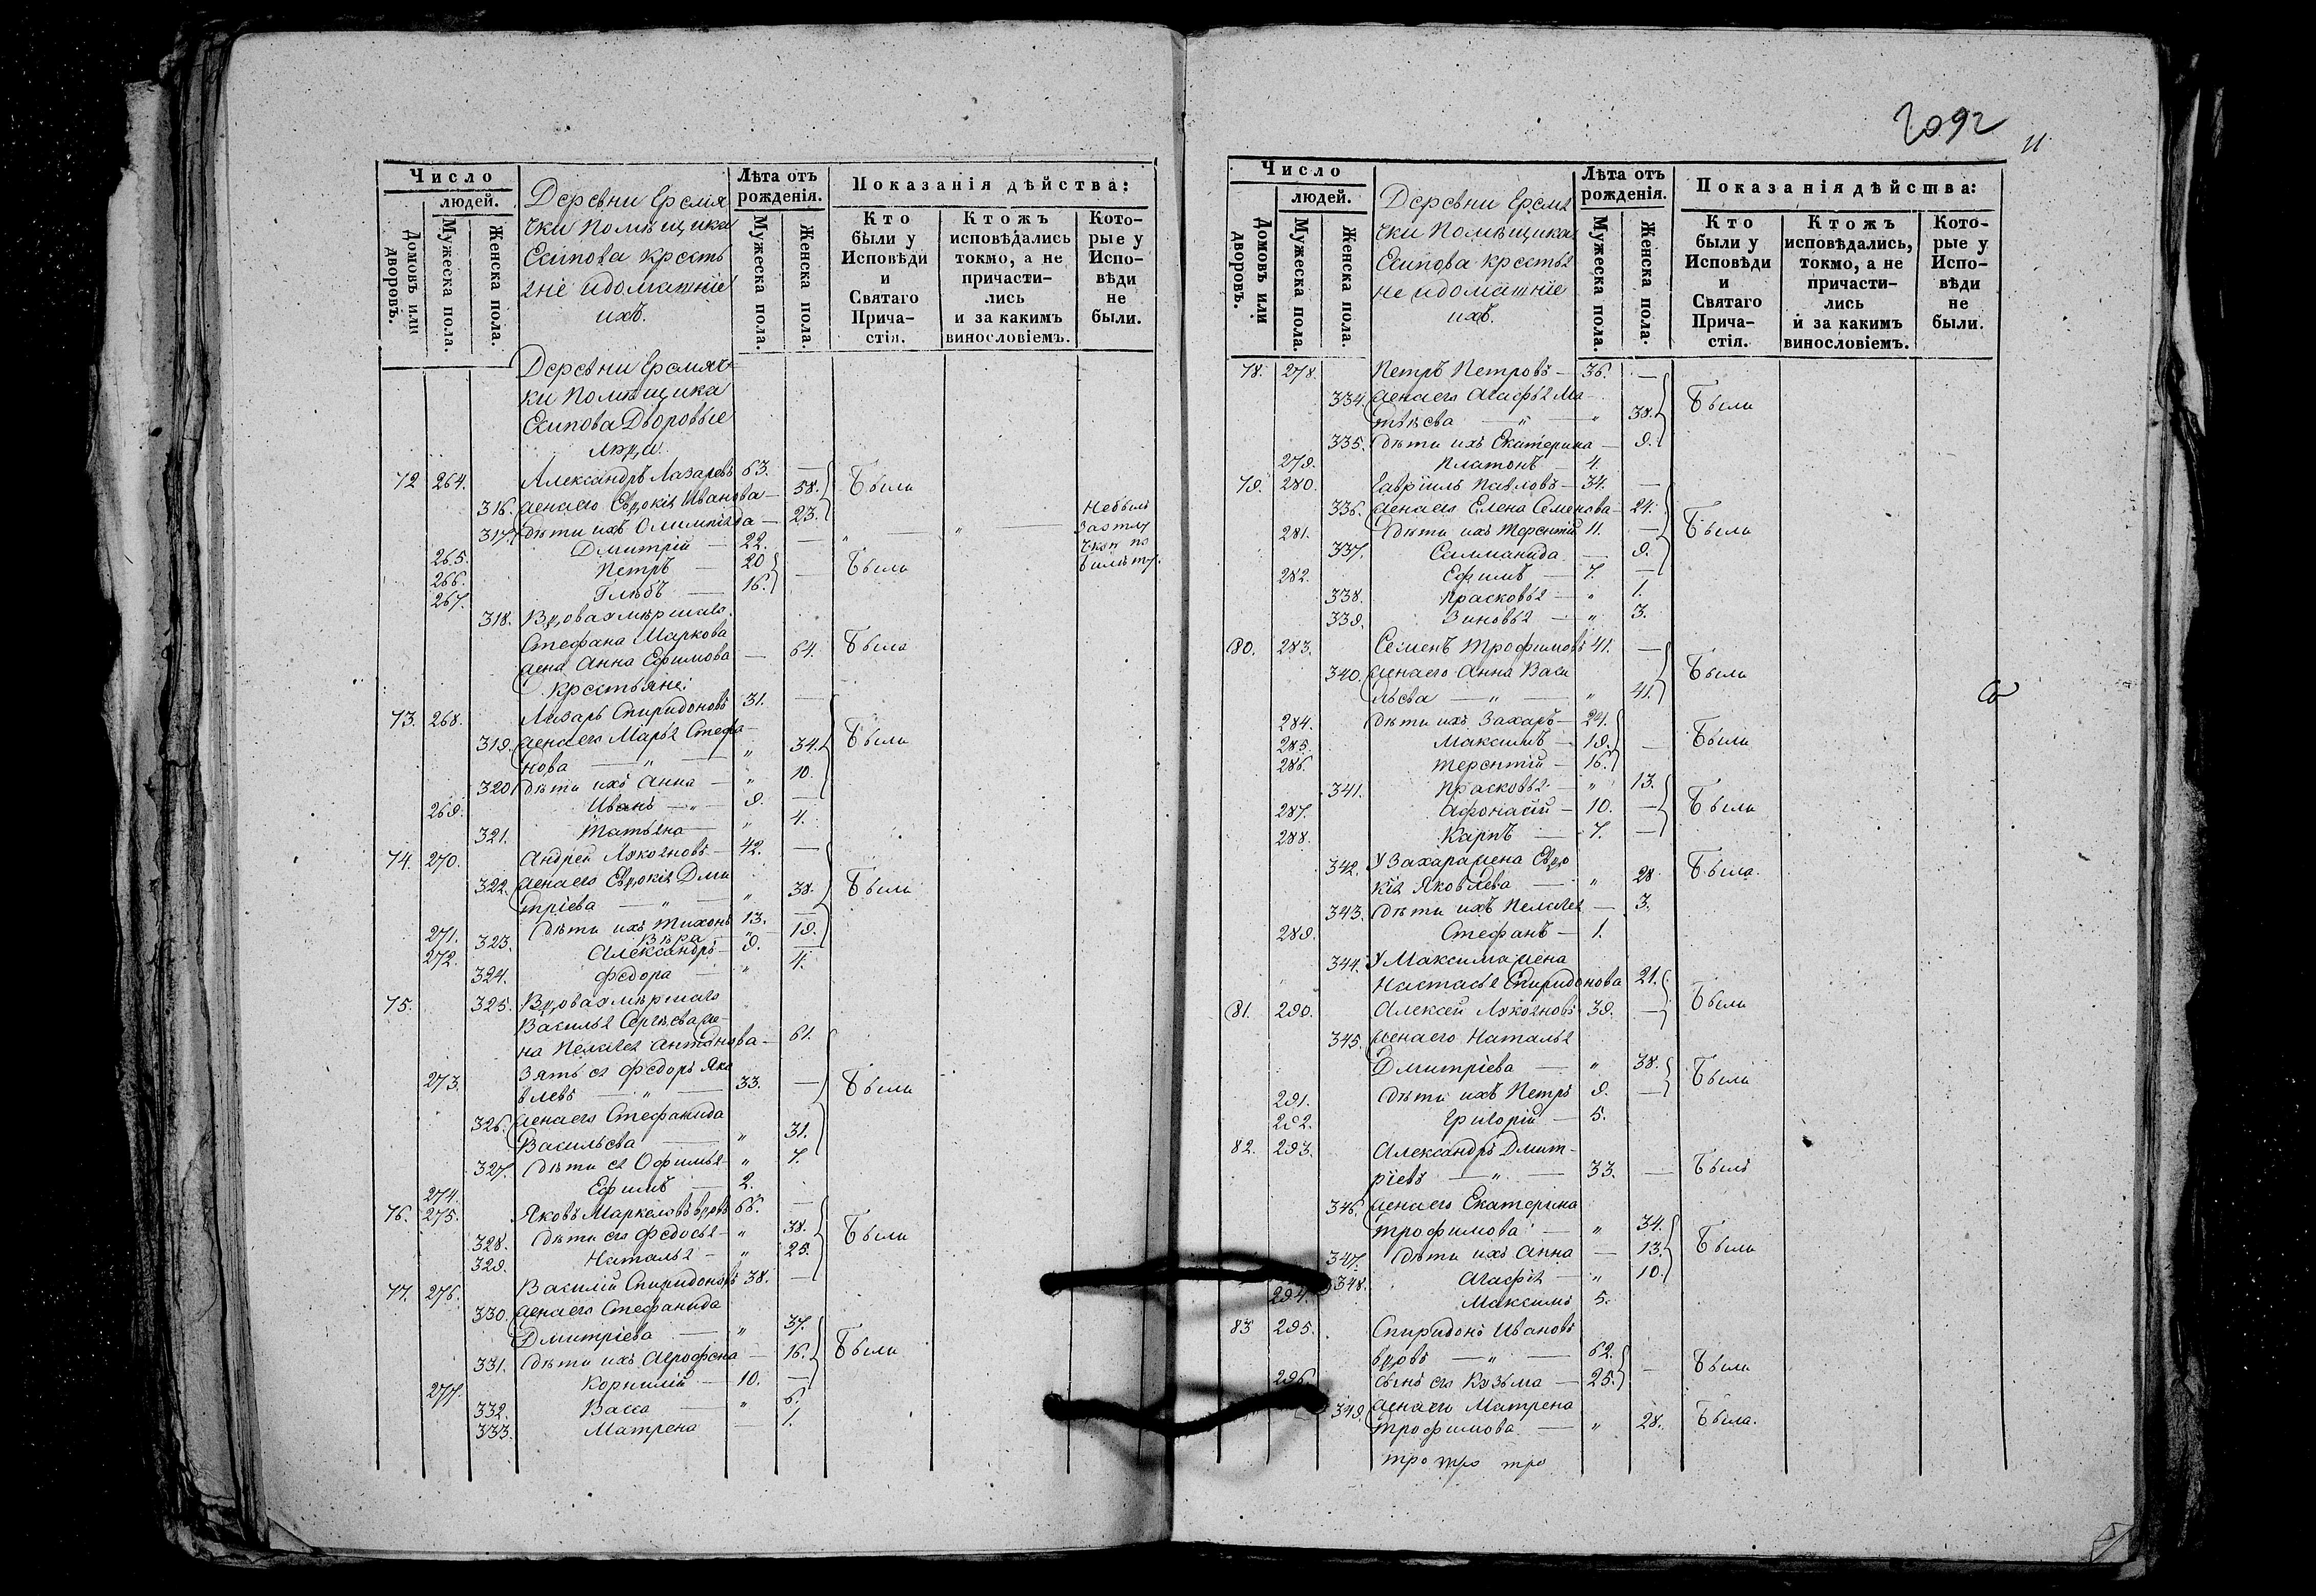 Число
людей.
Домовъ или дворовъ.
Мужеска пола.
Женска пола.
Деревни Еремя
чки помѣщика
Есипова кресть
яне идомашніе
ихъ.
Лѣта отъ рожденія.
Мужеска пола.
Женска пола.
Показанія дѣйства:
Кто были у Исповѣди и Святаго Прича- стія.
Ктожъ исповѣдались токмо, а не причасти- лись и за какимъ винословіемъ.
Кото- рые у Испо- вѣди не были.
Деревни Еремяч
ки помѣщика
Есипова Дворовые
люди.
72 264. Александръ Лазаревъ 63. —
316. жена его Евдокія Иванова — 58. Были
317. дѣти ихъ Олимпіада — 23.
265. Дмитрій — 22. — " — " — Небылъ
266. Петръ — 20 Были
267. Глѣбъ — 16. —
318. Вдовая умершаго
Стефана Маркова
жена Анна Ефимова — 64. Была
Крестьяне:
73. 268. Лазарь Спиридоновъ 31. —
319. жена его Марья Стефа-
нова — " — " 34. Были
320. дѣти ихъ Анна — " 10.
269. Иванъ — " — 9. —
321. Татьяна — " 4.
74. 270. Андрей Лукояновъ — 42. —
322. жена его Евдокія Дми
тріева — " — " 38. Были
271. дѣти ихъ Тихонъ 13. —
323. Вѣра — " — 19.
272. Александръ — 9. —
324. Федора — " 4.
75. 325. Вдовая умершаго
Василья Сергѣева же-
на Пелагея Антонова — 61.
273. Зять ея Федоръ Яко
влевъ — " — 33. — Были
326. жена его Стефанида
Васильева — " 31.
327. дѣти ея Офимья — " 7.
274. Ефимъ — 2.
76. 275. Яковъ Маркеловъ вдовъ 66. —
328. дѣти его Федосья — " 38. Были
329. Наталья — " 25.
77. 276. Василій Спиридоновъ 38. —
330. жена его Стефанида
Дмитріева — " 37.
331. дѣти ихъ Агрофена — 16. Были
277. Корнилій — 10. —
332. Васса — " 6.
333. Матрена — 1.
2092
11
Число
людей.
Домовъ или дворовъ.
Мужеска пола.
Женска пола.
Деревни Еремя
чки помѣщика
Есипова крестья
не идомашніе
ихъ.
Лѣта отъ рожденія.
Мужеска пола.
Женска пола.
Показанія дѣйства:
Кто были у Исповѣди и Святаго Прича- стія.
Ктожъ исповѣдались, токмо, а не причасти- лись и за какимъ винословіемъ.
Кото- рые у Испо- вѣди не были.
78. 278. Петръ Петровъ — 36. —
334. жена его Агафья Ма
твѣева — " — " 38. Были
335. дѣти ихъ Екатерина — 9.
279. Платонъ — 4.
79. 280. Гавріилъ Павловъ — 34. —
336. жена его Елена Семенова — 24.
281. дѣти ихъ Терентій 11. — Были
337. Саламанида — 9.
282. Ефимъ — 7. —
338. Прасковья — " 1.
339. Зиновья — " 3.
80. 283. Семенъ Трофимовъ 41. —
340. жена его Анна Васи
льева — " — " 41. Были
284. дѣти ихъ Захаръ — 24.
285. Максимъ — 19. — Были
286. Терентій — 16.
341. Прасковья — " 13.
287. Афонасій — 10. — Были
288. Карпъ — 7. —
342. У Захара жена Евдо
кія Яковлева — " 28 Была.
343. дѣти ихъ Пелагея — 3.
289. Стефанъ — 1.
344. У Максима жена
Настасья Спиридонова 21.
81. 290. Алексей Лукояновъ 39. — Были
345. жена его Наталья
Дмитріева — " 38.
291. дѣти ихъ Петръ 9. — Были
292. Григорій — 5.
82. 293. Александръ Дмит-
ріевъ — " — 33. — Былъ
346. жена его Екатерина
Трофимова — " 34.
347. дѣти ихъ Анна — 13. Были
348. Агафія — " 10.
294. Максимъ 5.
83 295. Спиридонъ Ивановъ
вдовъ — " — 62.
296. сынъ его Кузьма — 25. — Были
349. жена его Матрена
Трофимова — " 28. Была.
тро тро тро